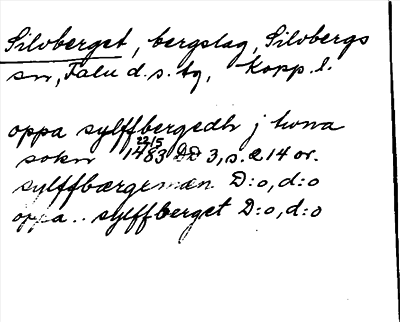 Silvberget, bergslag, Silvbergs
sn, Falu d.s. tg, Kopp. l.
oppa sylffbergedh j twna
sokn 22/5 1483 DD 3, s. 214 or.
sylffbærgxmæn D:o, d:o
oppa .. sylffberget D:o, d:o